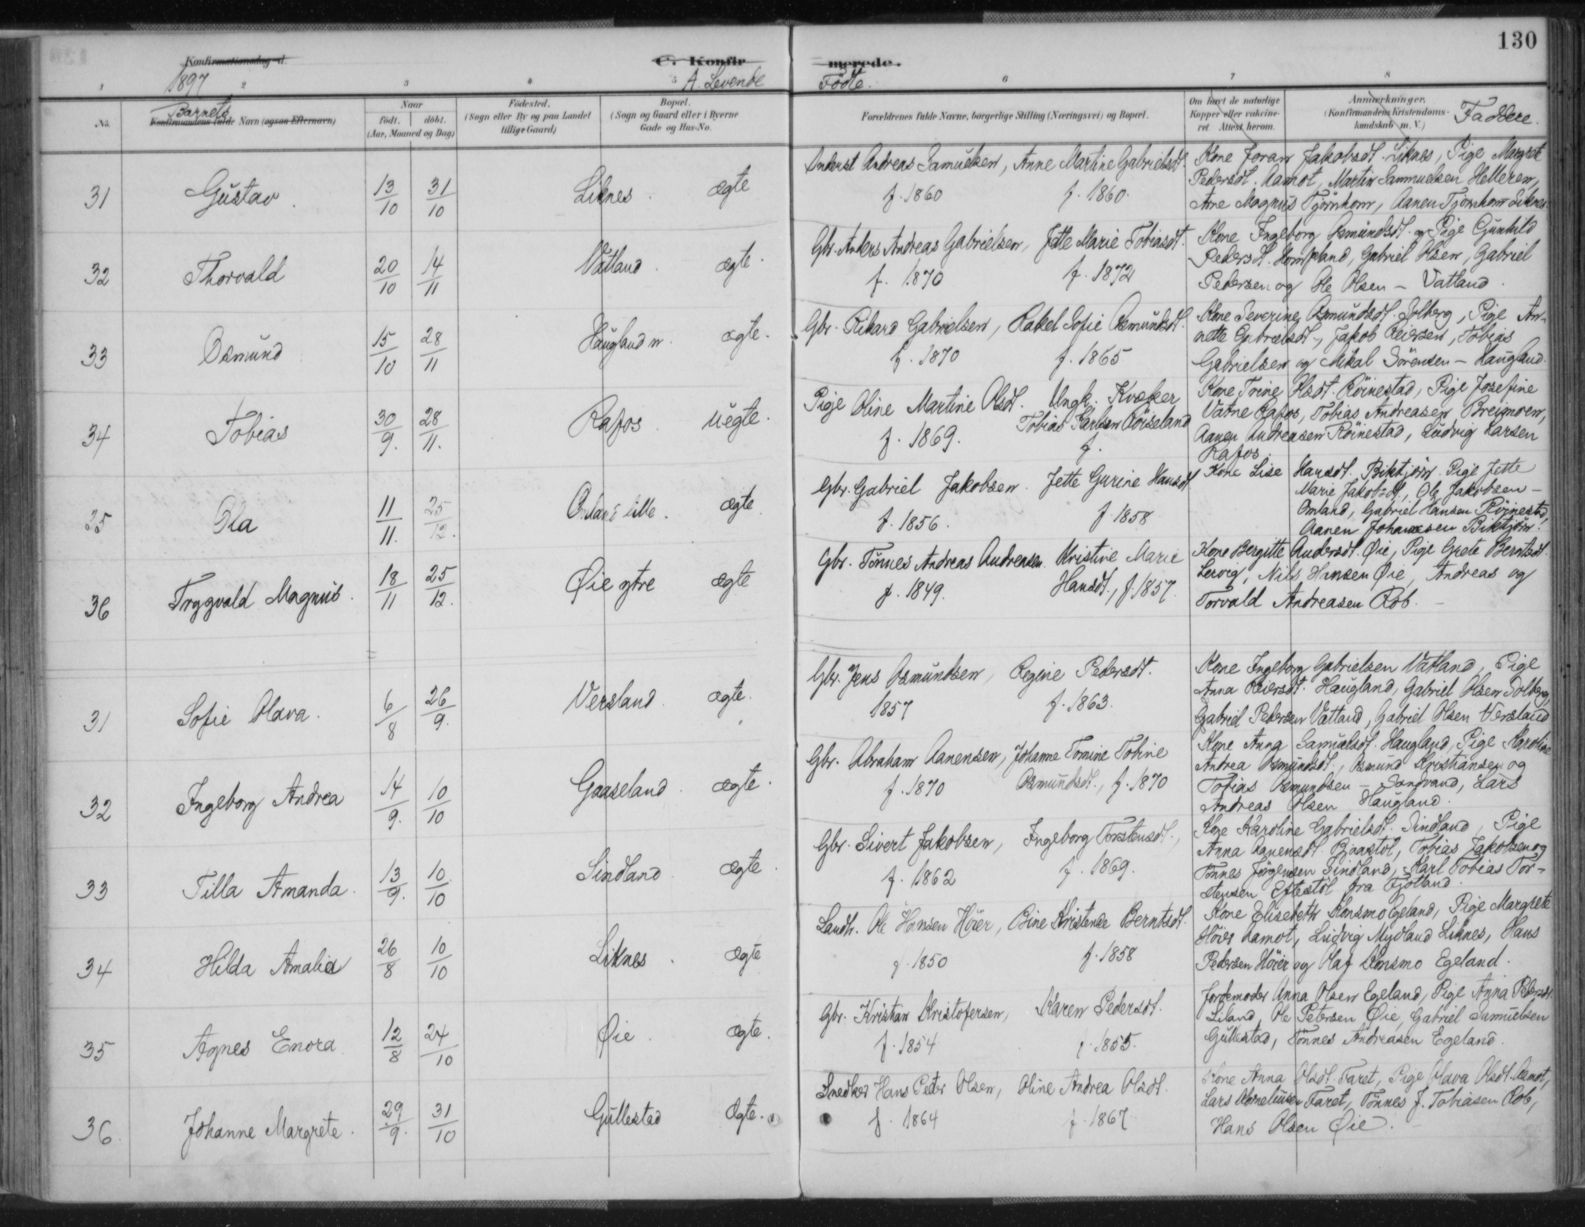 130
Konfirmationsdag d. C. Konfir merede.
1897 A. Levende Fødte.
1 2 3 4 5 6 7 8
No. Barnets Konfirmandens fulde Navn (ogsaa Efternavn) Naar Født. døbt. (Aar, Maaned og Dag) Fødested. (Sogn eller By og paa Landet tillige Gaard) Bopæl. (Sogn og Gaard eller i Byerne Gade og Hus-No. Forældrenes fulde Navne, borgerlige Stilling (Næringsvei) og Bopæl. Om havt de naturlige Kopper eller vakcineret. Attest herom. Anmærkninger. (Konfirmandens Kristendomskundskab m. V.) Faddere.
31 Gustav. 13/10 31/10 Liknes. ægte
Andreas Samuelsen, Anne Martine Gabrielsdt.
f. 1860 f. 1860.
Kone Joran Jakobsdt. Liknes, Pige Margrete
Pedersdt. Aamot, Martin Sammuelsen Helleren,
Arne Magnus Tjørnhom, Aanen Tjørnhom Liknes
32 Thorvald 20/10 14/11 Vatland. ægte.
Gbr. Anders Andreas Gabrielsen, Jette Marie Tobiasdt.
f. 1870 f. 1872
Kone Ingeborg Osmundsdt. og Pige Gunhild
Pedersdt. Gabriel Olsen, Gabriel
Pedersen og Ole Olsen – Vatland.
33 Osmund 15/10 28/11 Haugland n. ægte.
Gbr. Rikard Gabrielsen, Rakel Sofie Osmundsdt.
f. 1870 f. 1865
Kone Severine Osmundsdt. Solberg, Pige An-
nette Gabrielsdt, Jakob Reiersen, Tobias
Gabrielsen og Mikal Sørensen – Haugland.
34 Tobias 30/9. 28/11. Rafos. uægte.
Pige Oline Martine Olsdt. Ungk. Kvæker
Tobias Karlsen Røiseland
f. 1869. f.
Kone Trine Olsdt. Røinestad, Pige Josefine
Vatne Rafos, Tobias Andreasen Breimoen,
Aanen Andreasen Røinestad, Ludvig Larsen
Rafos
35 Ola 11/11. 25/12. Omland lille. ægte.
Gbr. Gabriel Jakobsen. Jette Gurine Hansdt
f. 1856. f 1858
Kone Lise Hansdt. Birktjørn. Pige Jette
Marie Jakobsdt, Ole Jakobsen –
Omland, Gabriel Hansen Røinestad,
Aanen Johannesen Birktjørn.
36 Trygvald Magnus. 18/11 25/12. Øie ytre ægte
Gbr. Tønnes Andreas Andreasen Kristine Marie
f. 1849. Hansdt., f. 1857.
Kone Bergitte Andersdt. Øie, Pige Grete Berntsdt.
Lervig, Nils Hansen Øie, Andreas og
Torvald Andreasen Rob. –
31 Sofie Olava. 6/8 26/9. Versland ægte.
Gbr. Jens Osmundsen, Regine Pedersdt.
1857 f. 1863.
Kone Ingeborg Gabrielsen Vatland, Pige
Anna Reiersdt. Haugland, Gabriel Olsen Solberg,
Gabriel Pedersen Vatland, Gabriel Olsen Versland
32 Ingeborg Andrea 14/9. 10/10 Gaaseland. ægte.
Gbr. Abraham Aanensen, Johanne Tomine Tobine
f. 1870 Osmundsdt., f. 1870
Kone Anna Samuelsdt. Haugland, Pige Karoline
Andrea Osmundsdt, Osmund Kristiansen og
Tobias Osmundsen – Sandvand, Lars
Andreas Olsen Haugland.
33 Tilla Amanda. 13/9. 10/10 Sindland ægte.
Gbr. Sivert Jakobsen, Ingeborg Torstensdt.,
f. 1862 f. 1869.
Kone Karoline Gabrielsdt. Sindland, Pige
Anna Aanensdt Tobias Jakobsen og
Tønnes Jørgensen Sindland, Karl Tobias Tor-
stensen Eftestøl fra Fjotland.
34 Hilda Amalia 26/8 10/10 Liknes. ægte
Landh. Ole Hansen Høier, Oline Kristense Berntsdt.
f. 1850 f. 1858
Kone Elisebeth Konsmo Egeland, Pige Margrete
Høier Aamot, Ludvig Mydland Liknes, Hans
Pedersen Høier og Olaf Konsmo Egeland.
35 Agnes Enora 12/8 24/10 Øie. ægte.
Gbr. Kristian Kristofersen, Karen Pedersdt.
f. 1854 f. 1855.
Jordemoder Anna Olsen Egeland, Pige Anna Pedersdt.
Ole Petersen Øie, Gabriel Samuelsen
Gullestad, Tønnes Andreasen Egeland.
36. Johanne Margrete. 29/9. 31/10 Gullestad ægte.
Snedker Hans Peter Olsen, Oline Andrea Olsdt.
f. 1864 f. 1867
Kone Anna Olsdt. Faret, Pige Olava Olsdt. Aamot,
Lars Korneliusen Faret, Tønnes J. Tobiasen Rob,
Hans Olsen Øie. –